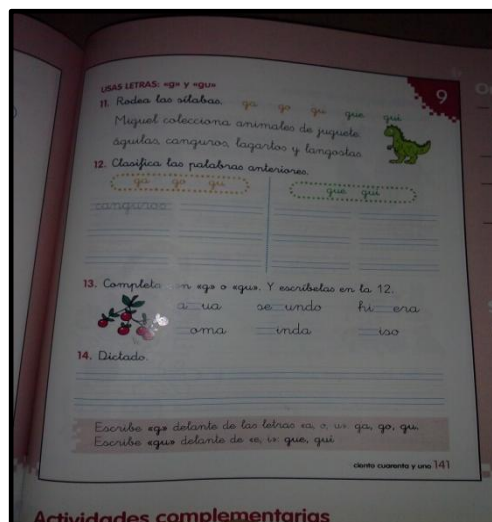 USAS LETRAS: «g» y «gu»
9
11. Rodea las sílabas. ga go gu gue gui
Miguel colecciona animales de juguete:
águilas, canguros, lagartos y langostas.
12. Clasifica las palabras anteriores.
ga go gu gue gui
canguros
13. Completa con «g» o «gu». Y escríbelas en la 12.
a__ua se__undo hi__era
__oma __inda __iso
14. Dictado.
Escribe «g» delante de las letras «a, o, u»: ga, go, gu.
Escribe «gu» delante de «e, i»: gue, gui
ciento cuarenta y uno 141
Actividades complementarias